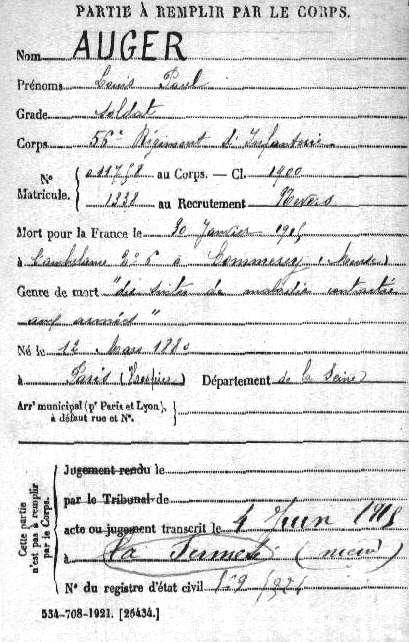 PARTIE À REMPLIR PAR LE CORPS.
Nom AUGER
Prénoms Louis Paul
Grade Soldat
Corps 56e Régiment d'Infanterie
N° Matricule. { 011758 au Corps. — Cl. 1900
1338 au Recrutement Nevers
Mort pour la France le 30 Janvier 1915
à l'ambulance 2° 6 à Commercy (Meuse)
Genre de mort "des suites de maladie contractée
aux armées"
Né le 12 Mars 1880
à Paris Département de la Seine
Arrt municipal (pr Paris et Lyon),
à défaut rue et N°.
Cette partie n'est pas à remplir par le Corps.
Jugement rendu le
par le Tribunal de
acte ou jugement transcrit le 4 Juin 1915
à La Fermeté
N° du registre d'état civil
534-708-1921. [26434.]